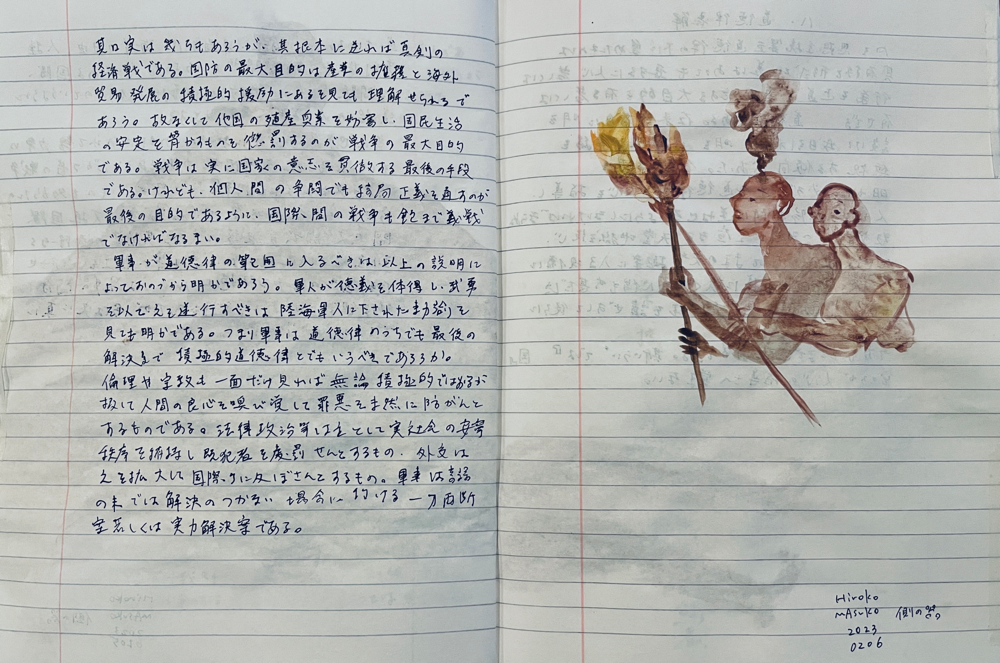 其口実は幾らもあろうが、其根本に走れば真剣の
経済戦である。国防の最大目的は産業の擁護と海外
貿易発展の積極的援助にあるを見ても理解せられるで
あろう。故なくして他国の殖産興業を妨害し、国民生活
の安定を脅かすものを懲罰するのが戦争の最大目的
である。戦争は実に国家の意志を貫徹する最後の手段
である。けれども、個人間の争闘でも結局正義を直すのが
最後の目的であるように、国際間の戦争も飽まで義戦
でなければなるまい。
軍事が道徳律の範囲に入るべきは以上の説明に
よっておのづから明かであろう。軍人が徳義を体得し、武事
を以て之を遂行すべきは陸海軍人に下された勅諭を
見ても明かである。つまり軍事は道徳律のうちでも最後の
解決まで積極的道徳律とでもいうべきであろうか。
倫理や宗教も一面だけ見れば無論積極的ではあるが
扱て人間の良心を喚び覚して罪悪を未然に防がんと
するものである。法律政治等は主として実社会の安寧
秩序を維持し既犯者を処罰せんとするもの、外交は
之を拡大して国際的に及ぼさんとするもの。軍事は言論
の末では解決のつかない場合に於ける一刀両断
案若しくは実力解決案である。
Hiroko
mAsuko 側の器。
2023
0206